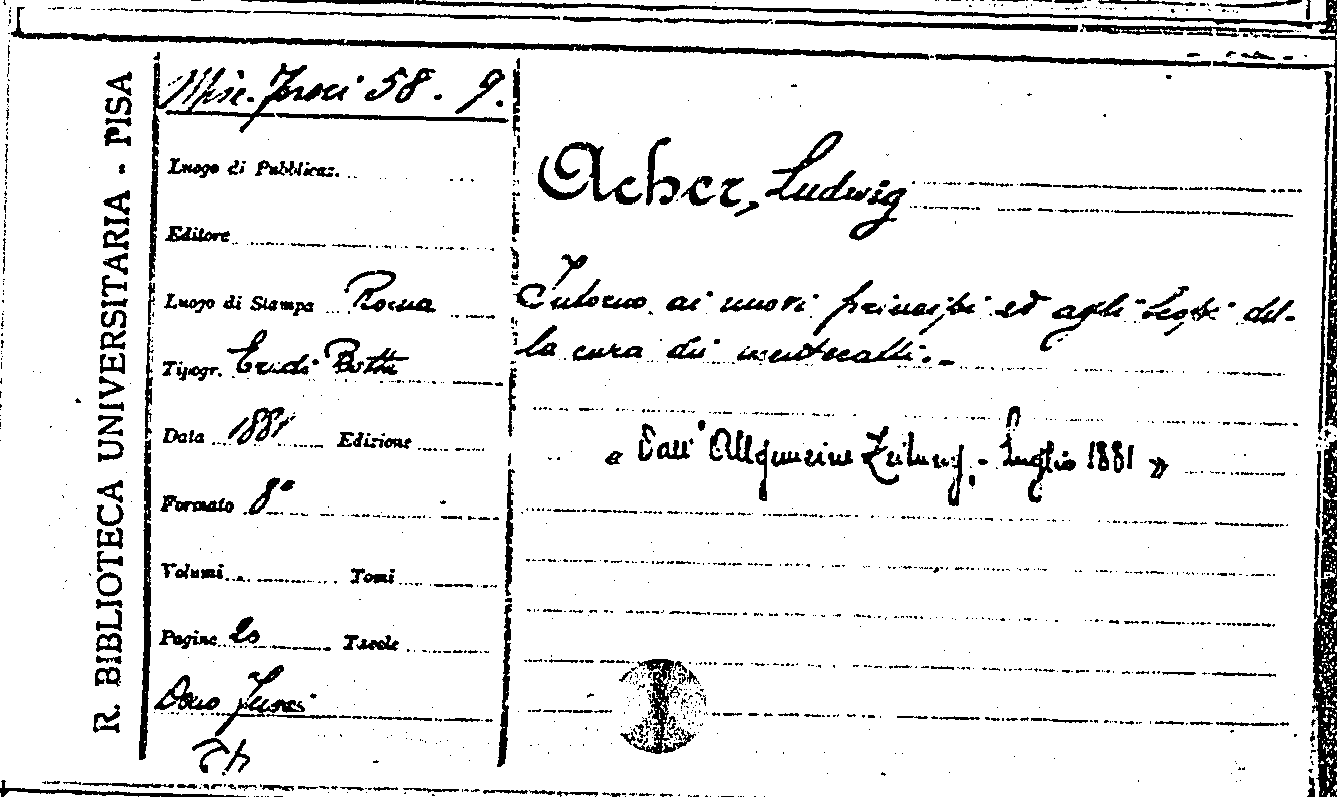 R. BIBLIOTECA UNIVERSITARIA - PISA
Misc. 58. 9.
Luogo di Pubblicaz.
Editore
Luogo di Stampa Roma
Tipogr. Eredi Botta
Data 1881 Edizione
Formato 8°
Volumi Tomi
Pagine 20 Tavole
Dono
Acher, Ludwig
Intorno ai nuovi principi ed agli del-
la cura dei mentecatti.-
« Dall' Allgemeine Zeitung. - Luglio 1881 »